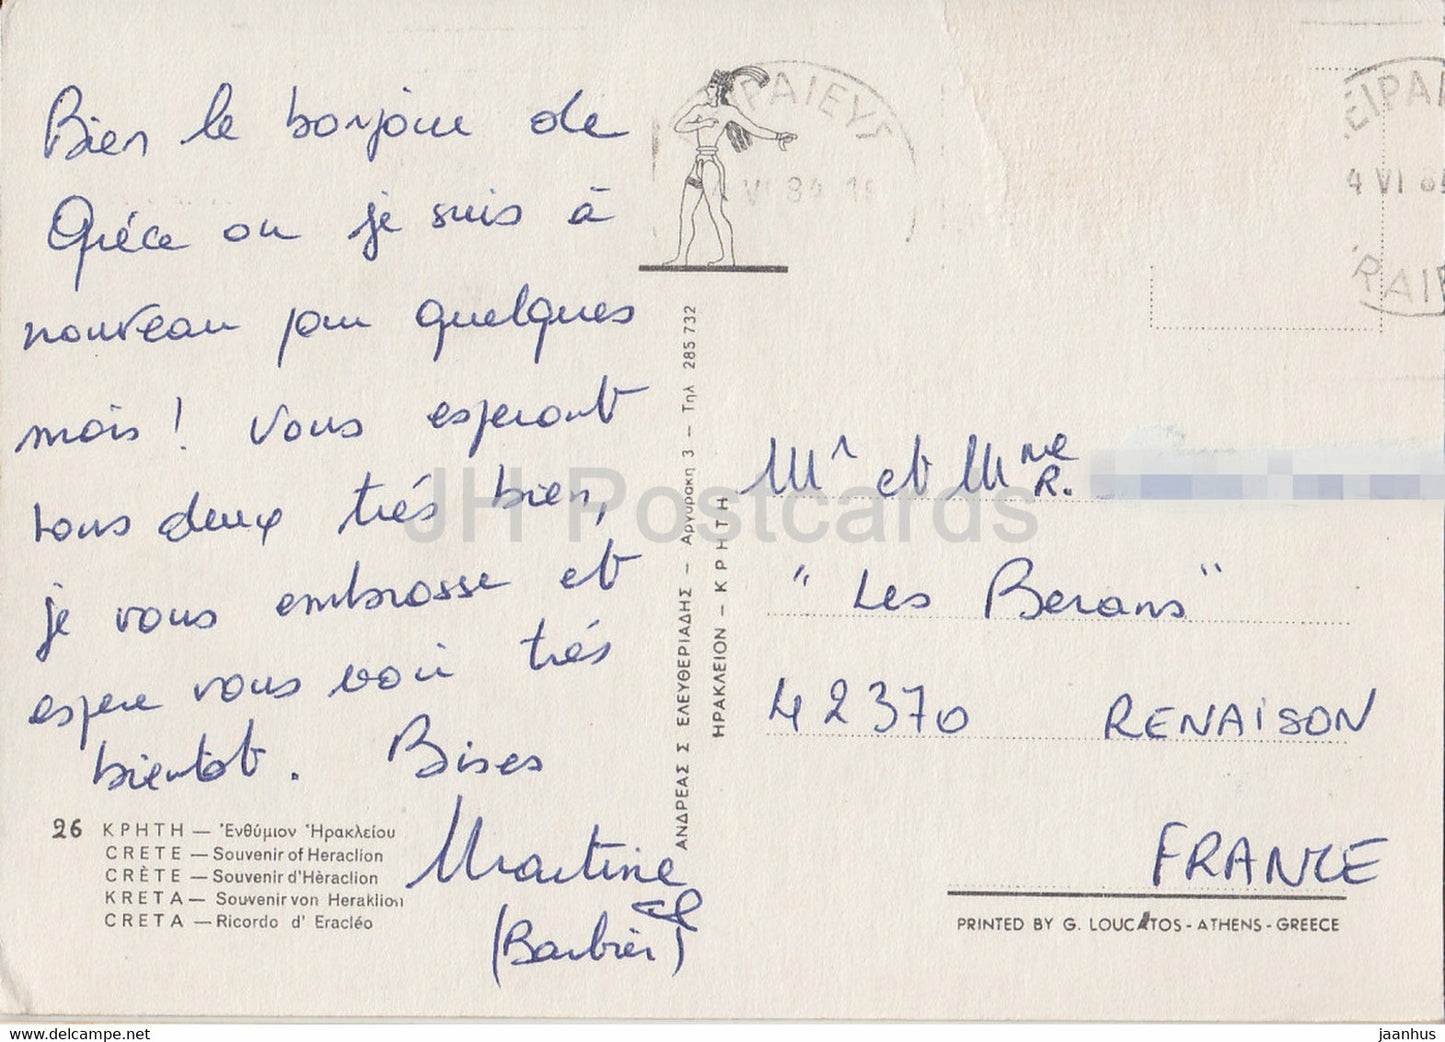 Bien le bonjour de
Grèce ou je suis à
nouveau pour quelques
mois ! Vous esperant
tous deux trés bien,
je vous embrasse et
espere vous voir trés
bientot. Bises
Martine
(Barbier)
26 ΚΡΗΤΗ — Ἐνθύμιον Ἡρακλείου
CRETE — Souvenir of Heraclion
CRÈTE — Souvenir d'Hèraclion
KRETA — Souvenir von Heraklion
CRETA — Ricordo d' Eracléo
ΑΝΔΡΕΑΣ Σ ΕΛΕΥΘΕΡΙΑΔΗΣ — Αργυράκη 3 — Τηλ 285 732
ΗΡΑΚΛΕΙΟΝ - ΚΡΗΤΗ
PAIEYS
VI 84 18
EIPAI
4 VI 84
PAIE
Mr et Mme R.
"Les Berans"
42370 RENAISON
FRANCE
PRINTED BY G. LOUCATOS - ATHENS - GREECE
JH Postcards
www.delcampe.net
jaanhus